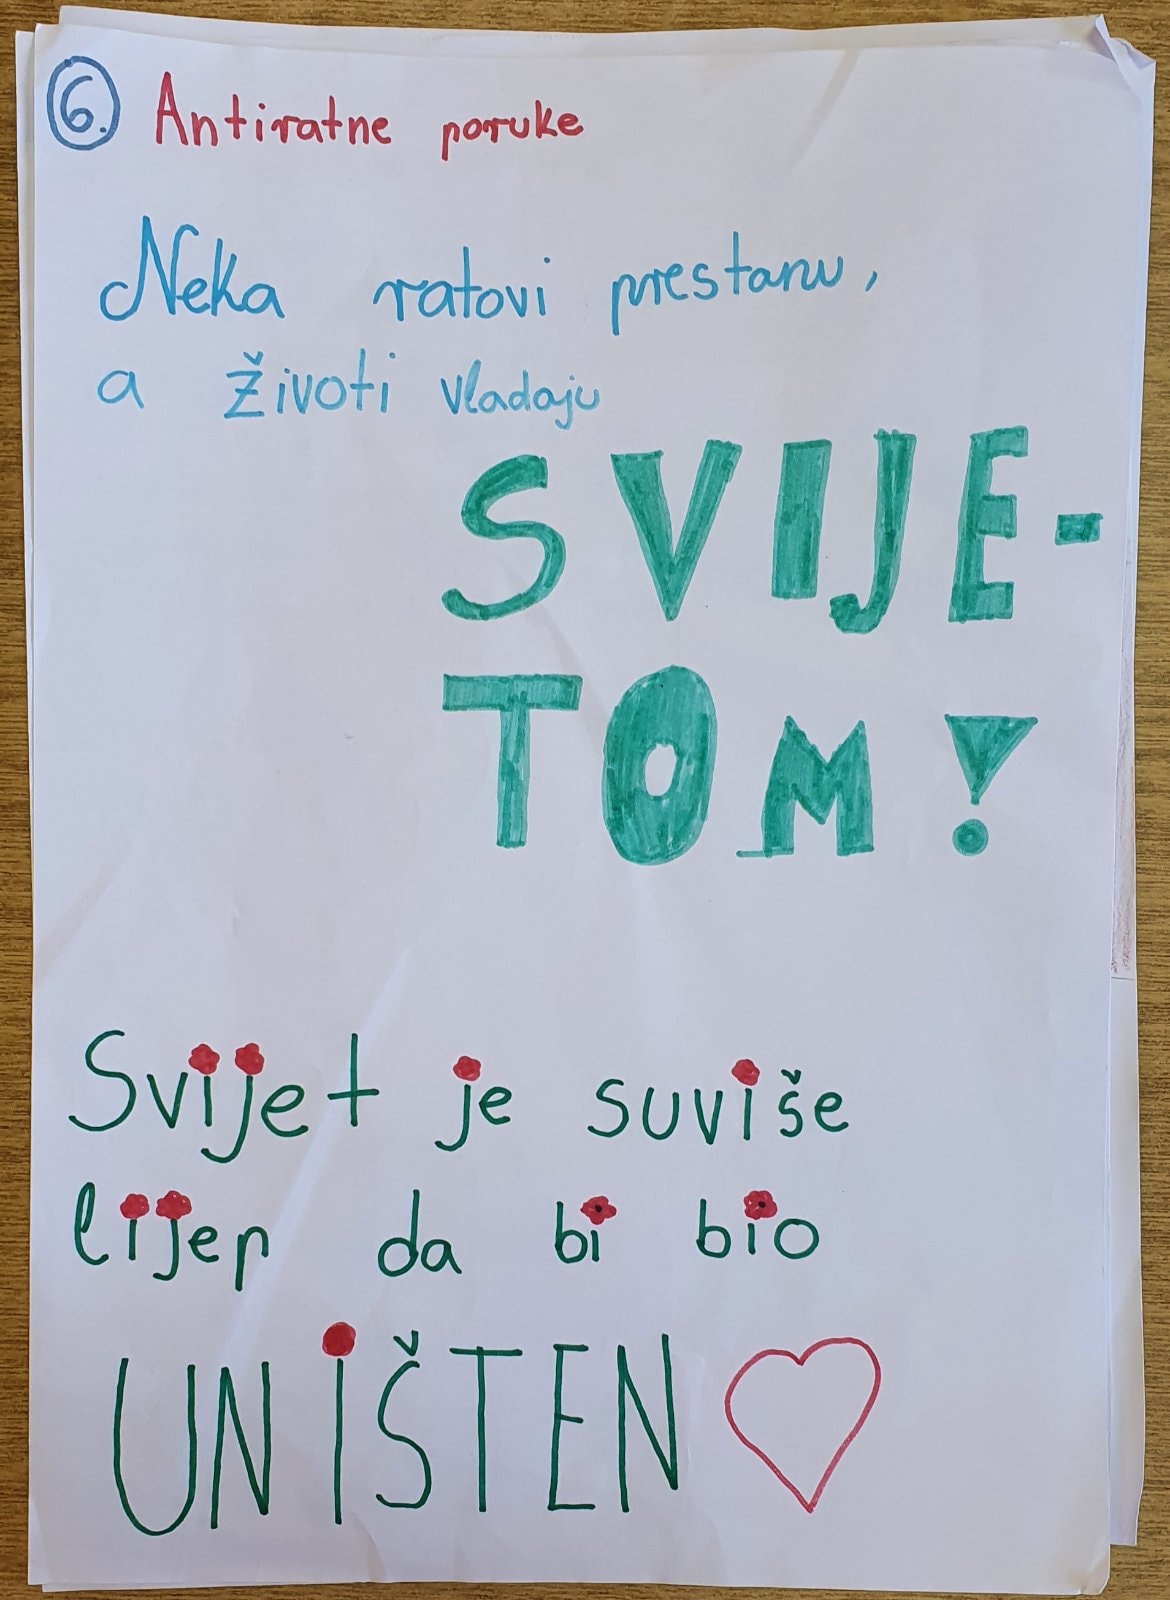 6. Antiratne poruke
Neka ratovi prestanu,
a životi vladaju
SVIJE-
TOM!
Svijet je suviše
lijep da bi bio
UNIŠTEN